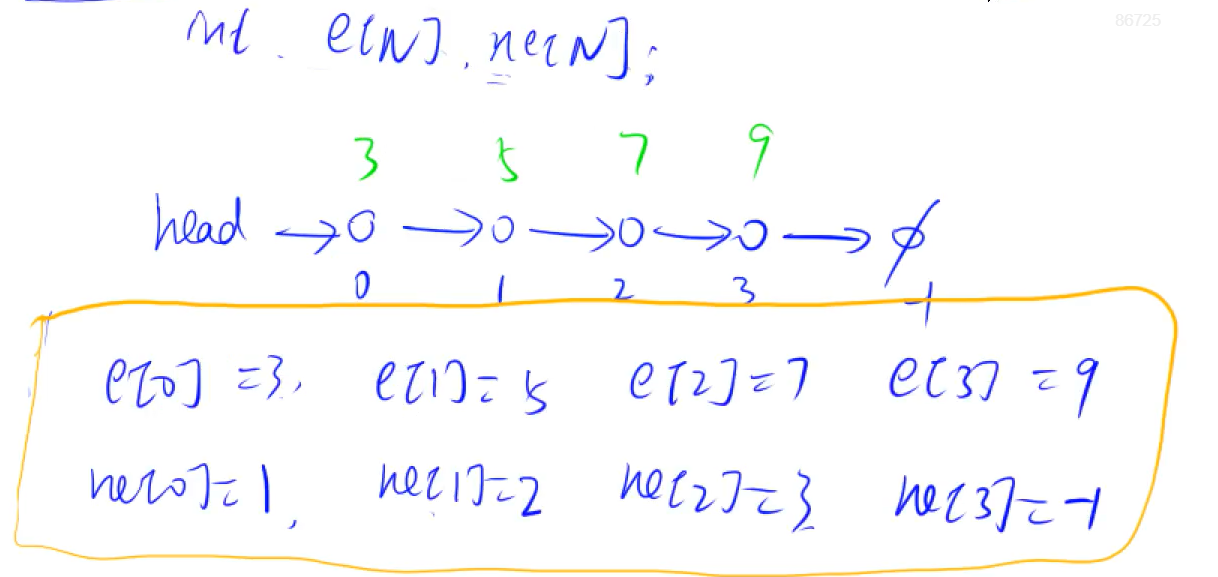 86725
int e[N], ne[N];
3 5 7 9
head → 0 → 0 → 0 → 0 → ∅
0 1 2 3 -1
e[0] = 3, e[1] = 5 e[2] = 7 e[3] = 9
ne[0] = 1, ne[1] = 2 ne[2] = 3 ne[3] = -1